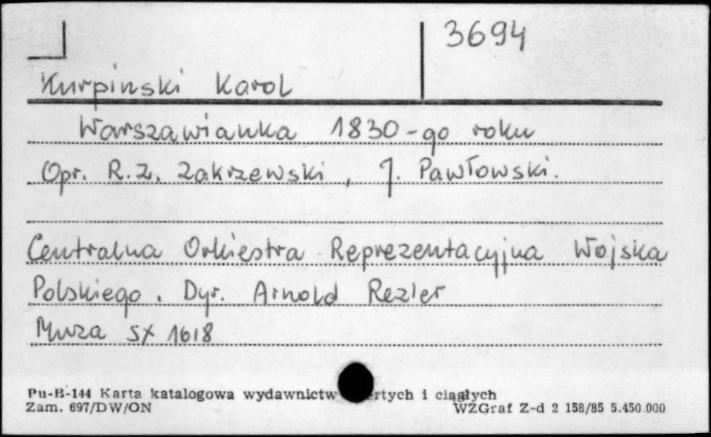 3694
Kurpinski Karol
Warszawianka 1830-go roku
Opr. R.Z. Zakrzewski, J. Pawłowski.
Centralna Orkiestra Reprezentacyjna Wojska
Polskiego. Dyr. Arnold Rezler
Muza SX 1618
Pu-B-144 Karta katalogowa wydawnictw i ciągłych
Zam. 697/DW/ON
WZGraf Z-d 2 158/85 5.450.000